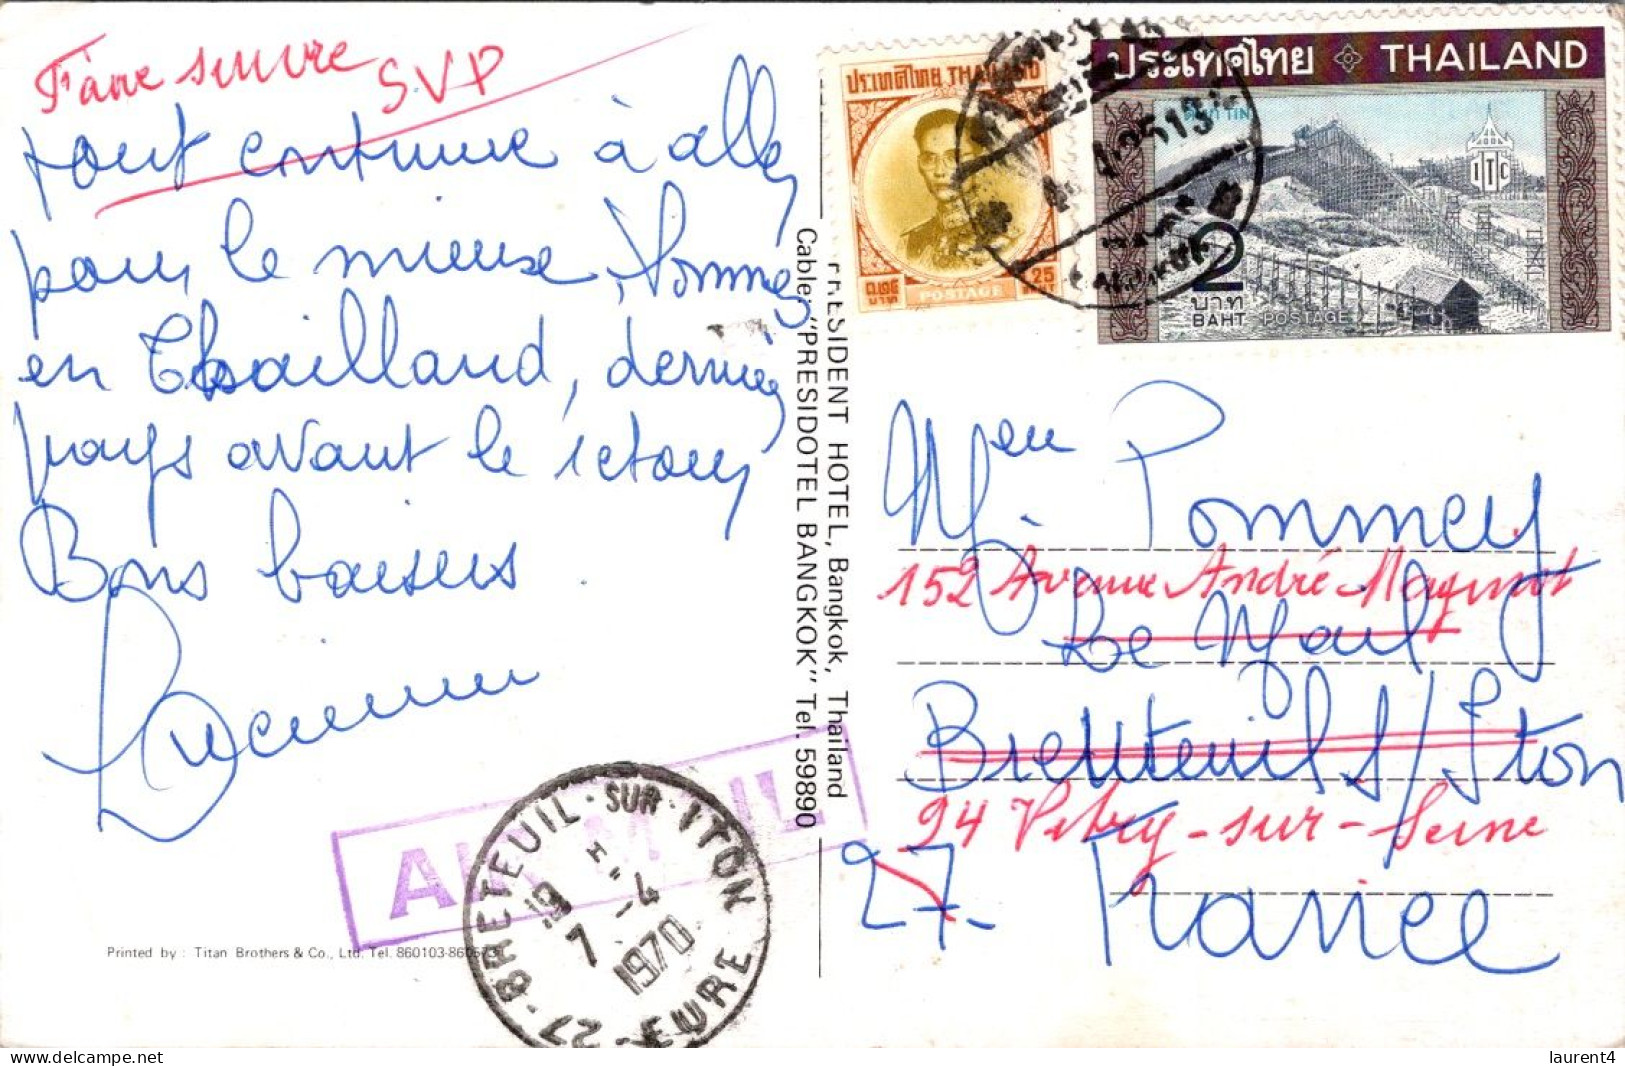 Faire suivre
SVP
tout continue à aller
pour le mieux, sommes
en Thailland, dernier
pays avant le retour
Bons baisers.
Printed by : Titan Brothers & Co., Ltd. Tel. 860103-860573
AIR MAIL
27-BRETEUIL-SUR-ITON
EURE
19 H
7 - 4
1970
PRESIDENT HOTEL, Bangkok, Thailand
Cable: "PRESIDOTEL BANGKOK" Tel. 59890
ประเทศไทย THAILAND
๑.๒๕ 1.25
บาท BAHT
POSTAGE
ประเทศไทย THAILAND
ITC
2
บาท
BAHT POSTAGE
Mr Pommery
152 Avenue André Maginot
Le
Breteuil s/Iton
94 Vitry-sur-Seine
27- France
laurent4